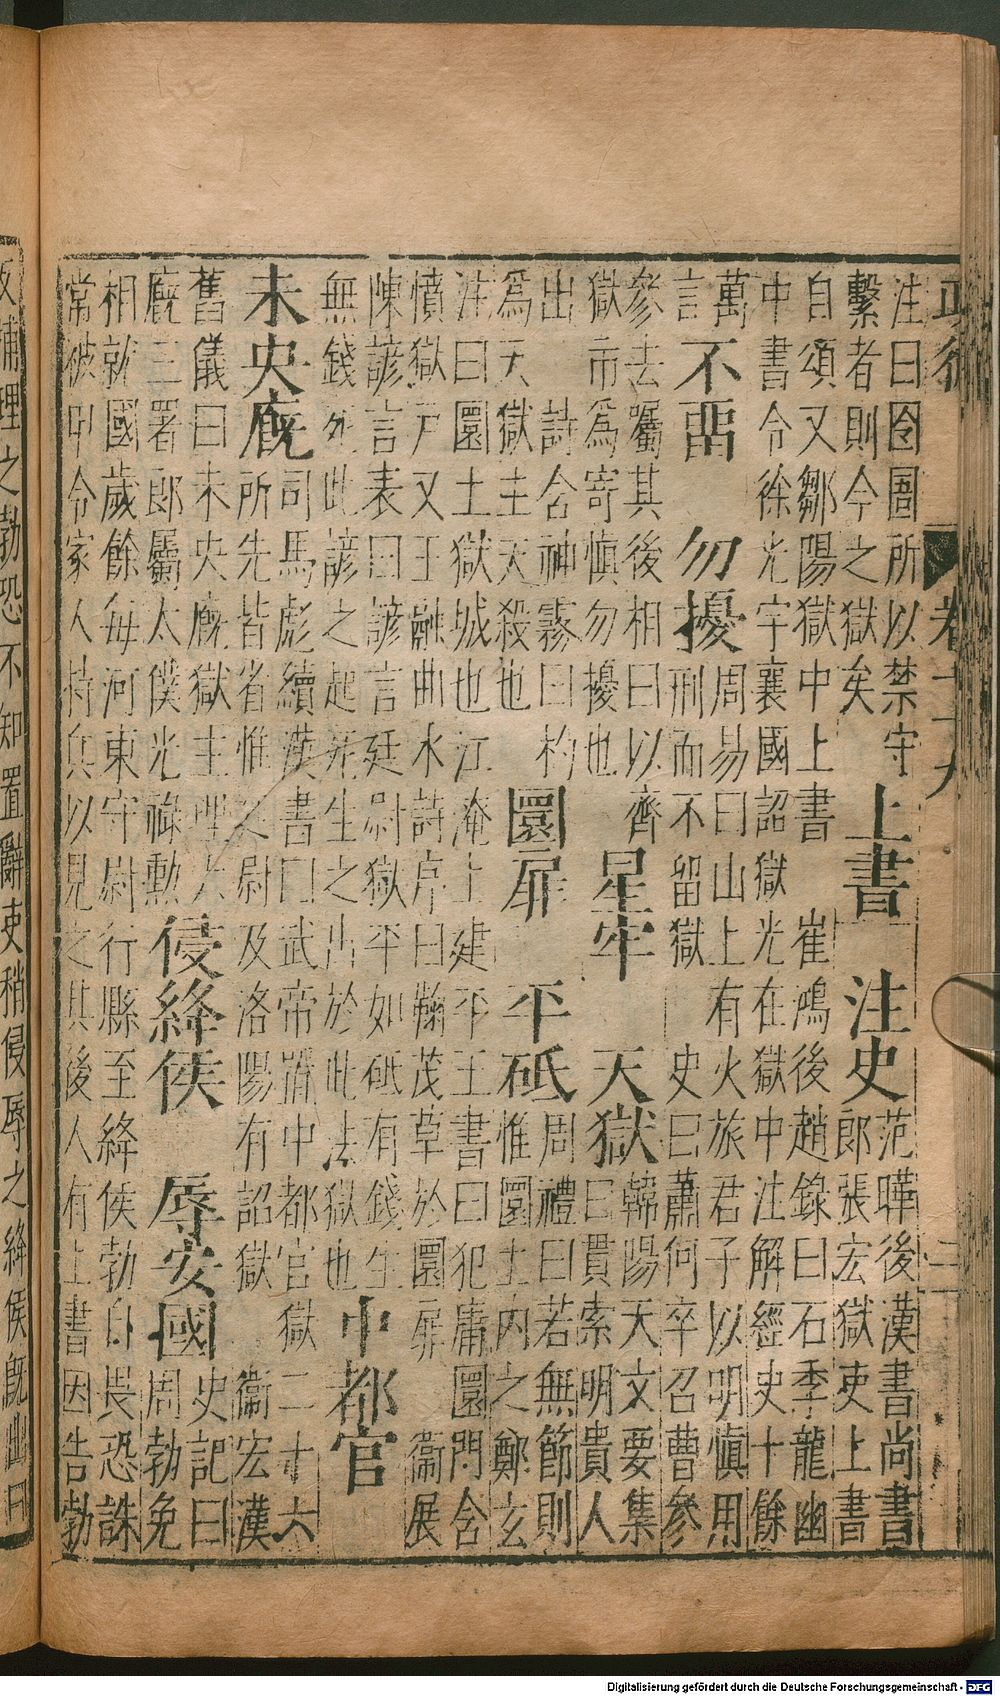 注曰囹圄所以禁守
繫者則今之獄矣
上書 注史
范曄後漢書尚書
郎張宏獄吏上書
自頌又鄒陽獄中上書 崔鴻後趙錄曰石季龍幽
中書令徐光宇襄國詔獄光在獄中注解經史十餘
萬
言
不留 勿擾
周易曰山上有火旅君子以明慎用
刑而不留獄 史曰蕭何卒召曹參
參去屬其後相曰以齊
獄市為寄慎勿擾也
星牢 天獄
韓陽天文要集
曰貫索明貴人
出 詩含神霧曰杓
為天獄主天殺也
圜扉 平砥
周禮曰若無節則
惟圜土內之鄭玄
注曰圜土獄城也江淹上建平王書曰犯庸圜門含
憤獄戶又王融曲水詩序曰鞠茂草於圜扉 衞展
陳諺言表曰諺言廷尉獄平如砥有錢生
無錢死此諺之起死生之出於此法獄也
中都官
未央廐
司馬彪續漢書曰武帝置中都官獄二十六
所先皆省惟廷尉及洛陽有詔獄 衞宏漢
舊儀曰未央廐獄主理大
廐三署郎屬太僕光祿勳
侵絳侯 辱安國
史記曰
周勃免
相就國歲餘每河東守尉行縣至絳侯勃自畏恐誅
常被甲令家人持兵以見之其後人有上書因告勃
捕理之勃恐不知置辭吏稍侵辱之絳侯既出曰
Digitalisierung gefördert durch die Deutsche Forschungsgemeinschaft - DFG